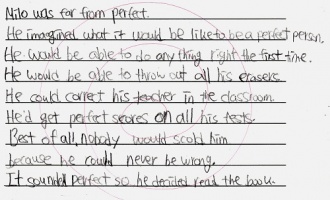 Milo was far from perfect.
He imagined what it would be like to be a perfect person.
He would be able to do any thing right the first time.
He would be able to throw out all his erasers.
He could correct his teacher in the classroom.
He'd get perfect scores on all his tests.
Best of all, nobody would scold him
because he could never be wrong.
It sounded perfect so he decided read the book.